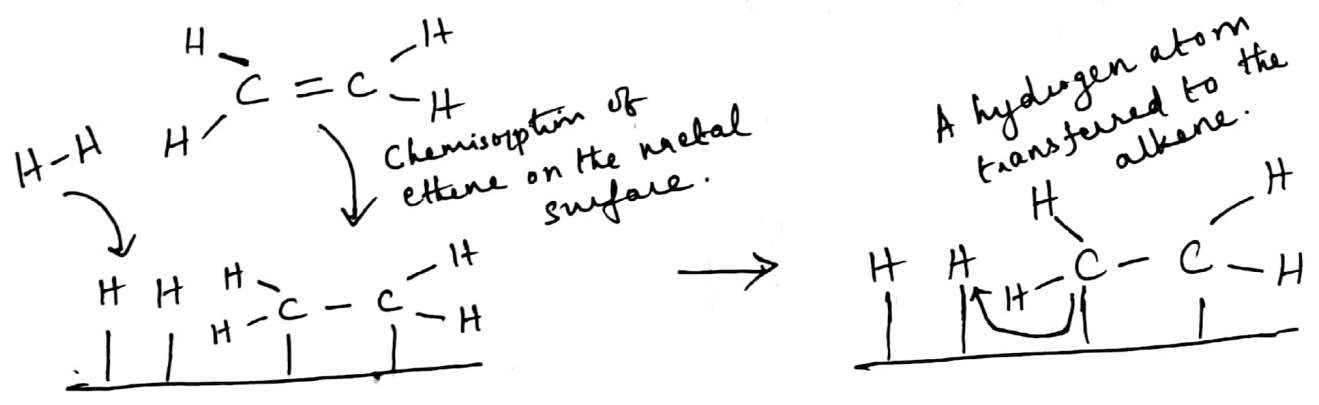 H
H
C = C
H
H
H-H
Chemisorption of
ethene on the metal
surface.
H H
H
H
C - C
H
H
A hydrogen atom
transferred to the
alkene.
H
H
H H
H
C - C
H